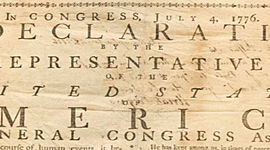 IN CONGRESS, JULY 4, 1776.
DECLARATI
BY THE
REPRESENTATIVE
OF THE
ITED STAT
MERIC
NERAL CONGRESS AS
course of human events it be
He has kept among us, in times of peace